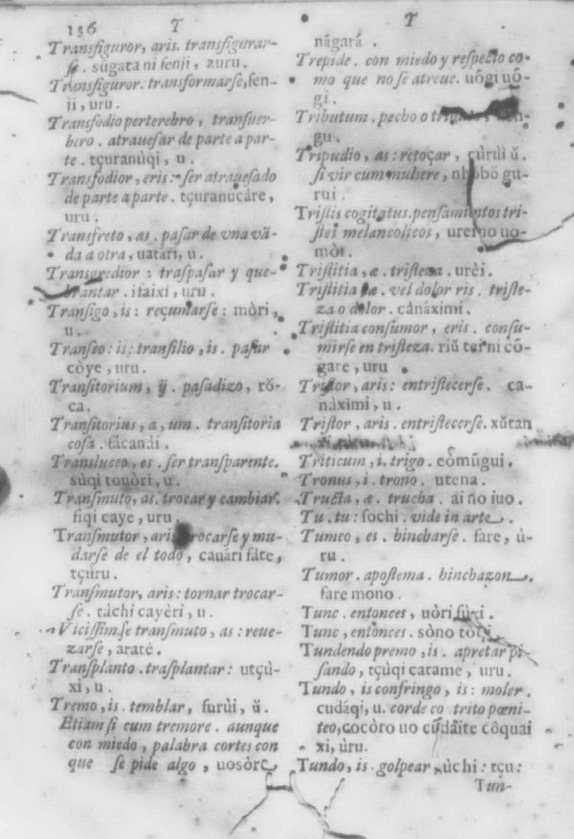 136 T
Transfiguror, aris. transfigurar-
se. sugata ni fenji, zuru.
Transfiguror. transformarse, fen-
ji, uru.
Transfodio perterebro, transuer-
bero. atrauesar de parte a par-
te. tçuranúqi, u.
Transfodior, eris: ser atrauesado
de parte a parte. tçuranucáre,
uru.
Transfreto, as. pasar de vna vã-
da a otra, uatari, u.
Transgredior: traspasar y que-
brantar. itaixi, uru.
Transigo, is: reçumarse: mòri,
u.
Transeo: is: transilio, is. pasar
còye, uru.
Transitorium, ij. pasadizo, rŏ-
ca.
Transitorius, a, um. transitoria
cosa. facanái.
Transluceo, es. ser transparente.
súqi touòri, u.
Transmuto, as. trocar y cambiar.
fiqi caye, uru.
Transmutor, aris trocarse y mu-
darse de el todo, cauári fáte,
tçuru.
Transmutor, aris: tornar trocar-
se. táchi cayèri, u.
Vicissim se transmuto, as: reue-
zarse, araté.
Transplanto. trasplantar: utçú-
xi, u.
Tremo, is. temblar, furúi, ŭ.
Etiam si cum tremore. aunque
con miedo, palabra cortes con
que se pide algo, uosòre
T
nágará.
Trepide. con miedo y respecto co-
mo que no se atreue. uôgi uô-
gi.
Tributum. pecho o
gu.
Tripudio, as: retoçar, cúrúi ŭ.
si vir cum muliere, nhôbŏ gu-
rui.
Tristis cogitatus. pensamientos tri-
stes melancolicos, ureino uo-
mòi.
Tristitia, æ. tristeza. urèi.
Tristitia æ. vel dolor ris. triste-
za o dolor. cánáximi.
Tristitia consumor, eris. consu-
mirse en tristeza. cô-
gare, uru
Tristor, aris: entristecerse. ca-
náximi, u.
Tristor, aris. entristecerse. xŭtan
Triticum, i. trigo. comúgui.
Tronus, i. trono. utena.
Tructa, æ. trucha. ai no iuo.
Tu. tu: sochi. vide in arte.
Tumeo, es. hincharse. fare, ú-
ru.
Tumor. apostema. hinchazon.
fare mono.
Tunc. entonces, uòri
Tunc, entònces. sòno
Tundendo premo, is. apretar pi-
sando, tçúqi catame, uru.
Tundo, is confringo, is: moler.
cudáqi, u. corde co trito pœni-
teo, cocòro uo cudáite côquai
xi, ùru.
Tundo, is. golpear, úchi: tçu:
Tun-